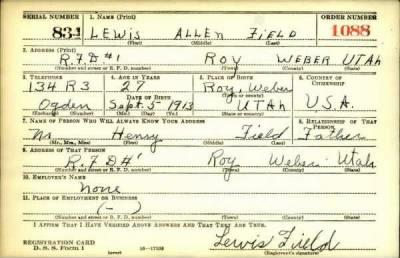 SERIAL NUMBER 1. NAME (Print) ORDER NUMBER
834 LEWIS ALLEN FIELD 1088
(First) (Middle) (Last)
2. ADDRESS (Print)
R.F.D #1 ROY WEBER UTAH
(Number and street or R. F. D. number) (Town) (County) (State)
3. TELEPHONE 4. AGE IN YEARS 5. PLACE OF BIRTH 6. COUNTRY OF CITIZENSHIP
134 R3 27 Roy, Weber
DATE OF BIRTH
Ogden Sept. 5 1913 UTAH U.S.A.
(Exchange) (Number) (Mo.) (Day) (Yr.) (State or country)
7. NAME OF PERSON WHO WILL ALWAYS KNOW YOUR ADDRESS 8. RELATIONSHIP OF THAT PERSON
Mr. Henry Field Father
(Mr., Mrs., Miss) (First) (Middle) (Last)
9. ADDRESS OF THAT PERSON
R.F.D #1 Roy Weber Utah
(Number and street or R. F. D. number) (Town) (County) (State)
10. EMPLOYER'S NAME
none
11. PLACE OF EMPLOYMENT OR BUSINESS
(-)
(Number and street or R. F. D. number) (Town) (County) (State)
I AFFIRM THAT I HAVE VERIFIED ABOVE ANSWERS AND THAT THEY ARE TRUE.
REGISTRATION CARD Lewis Field
D. S. S. Form 1 (over) (Registrant's signature)